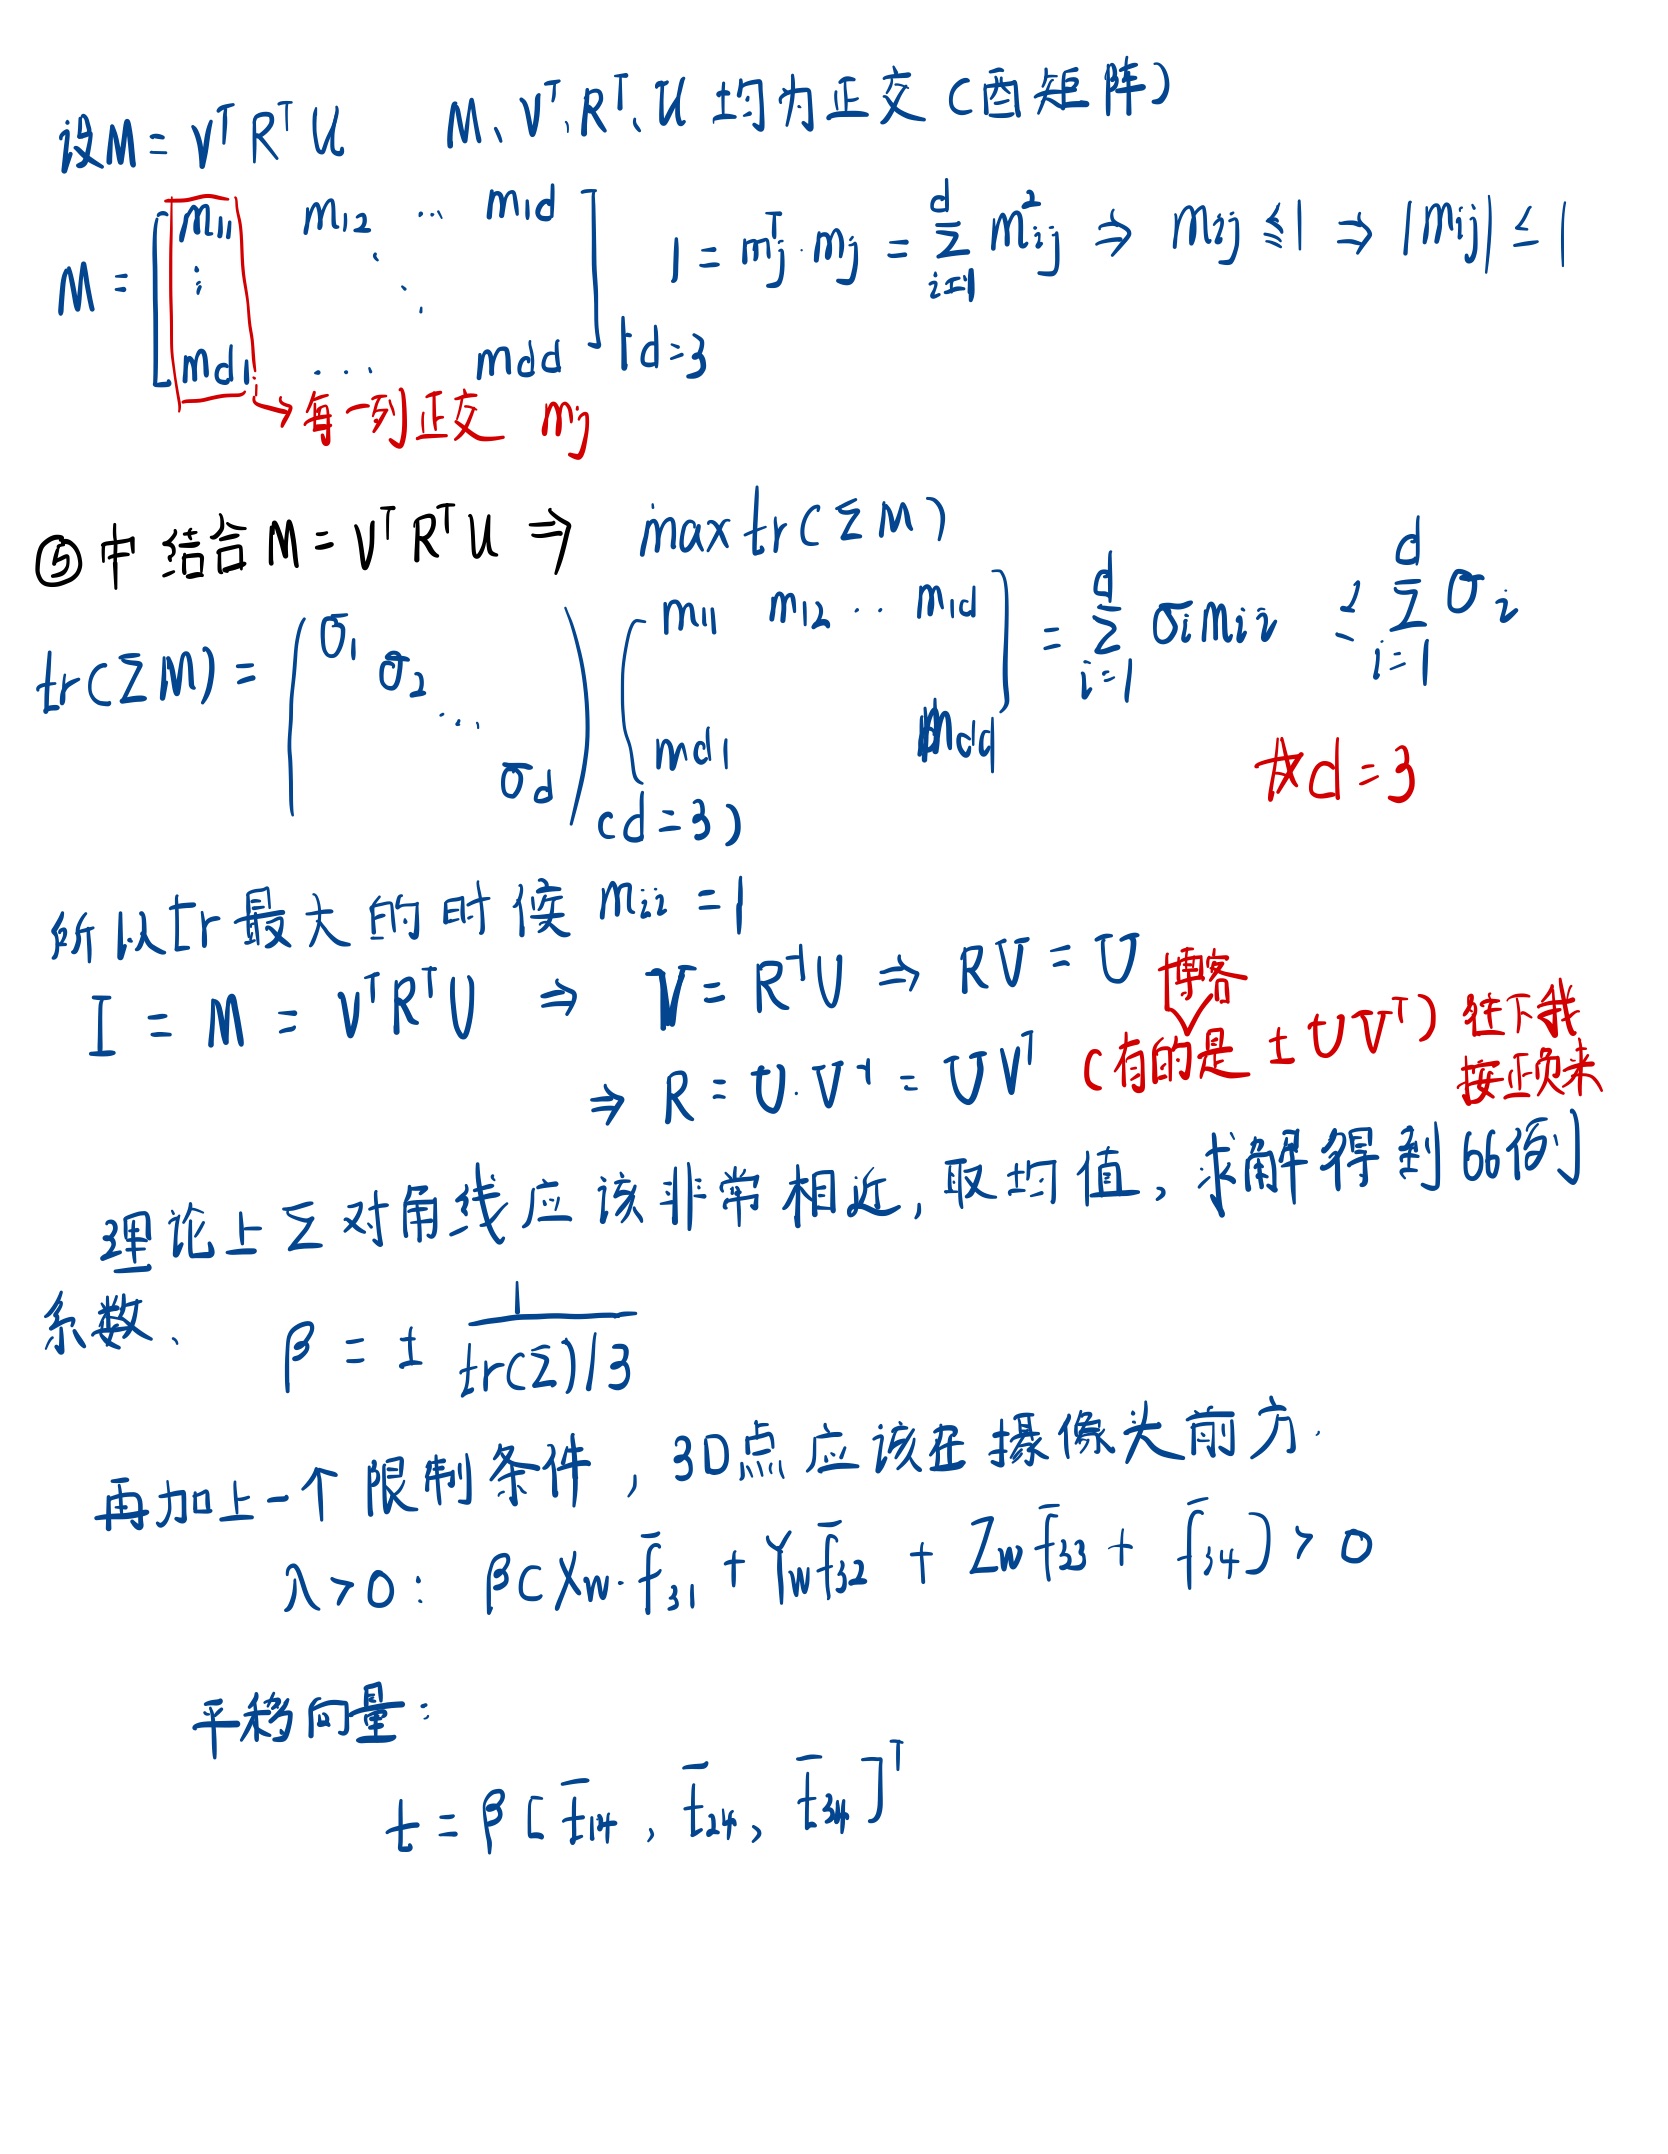 设M = V^T R^T U M、V^T、R^T、U 均为正交 (酉矩阵)
M = [ m11 m12 ... m1d ⋮ ⋱ md1 ... mdd ] 1 = mj^T · mj = Σ_{i=1}^{d} m²ij ⇒ mij ≤ 1 ⇒ |mij| ≤ 1
d=3
→ 每一列正交 mj
⑤中 结合 M = V^T R^T U ⇒ max tr(ΣM)
tr(ΣM) = ( σ1 σ2 ... σd ) [ m11 m12 ... m1d md1 mdd ] = Σ_{i=1}^{d} σi mii ≤ Σ_{i=1}^{d} σi
(d=3) ☆d=3
所以tr最大的时候 mii = 1
I = M = V^T R^T U ⇒ V = R^-1 U ⇒ RV = U 博客
⇒ R = U·V^-1 = UV^T (有的是 ±UV^T) 往下我
按正负来
理论上Σ对角线应该非常相近,取均值,求解得到66例
系数、 β = ± 1 / (tr(Σ)/3)
再加上一个限制条件,3D点应该在摄像头前方.
λ>0: β(Xw·f̄31 + Yw f̄32 + Zw f̄33 + f̄34) > 0
平移向量:
t = β [ t̄14, t̄24, t̄34 ]^T